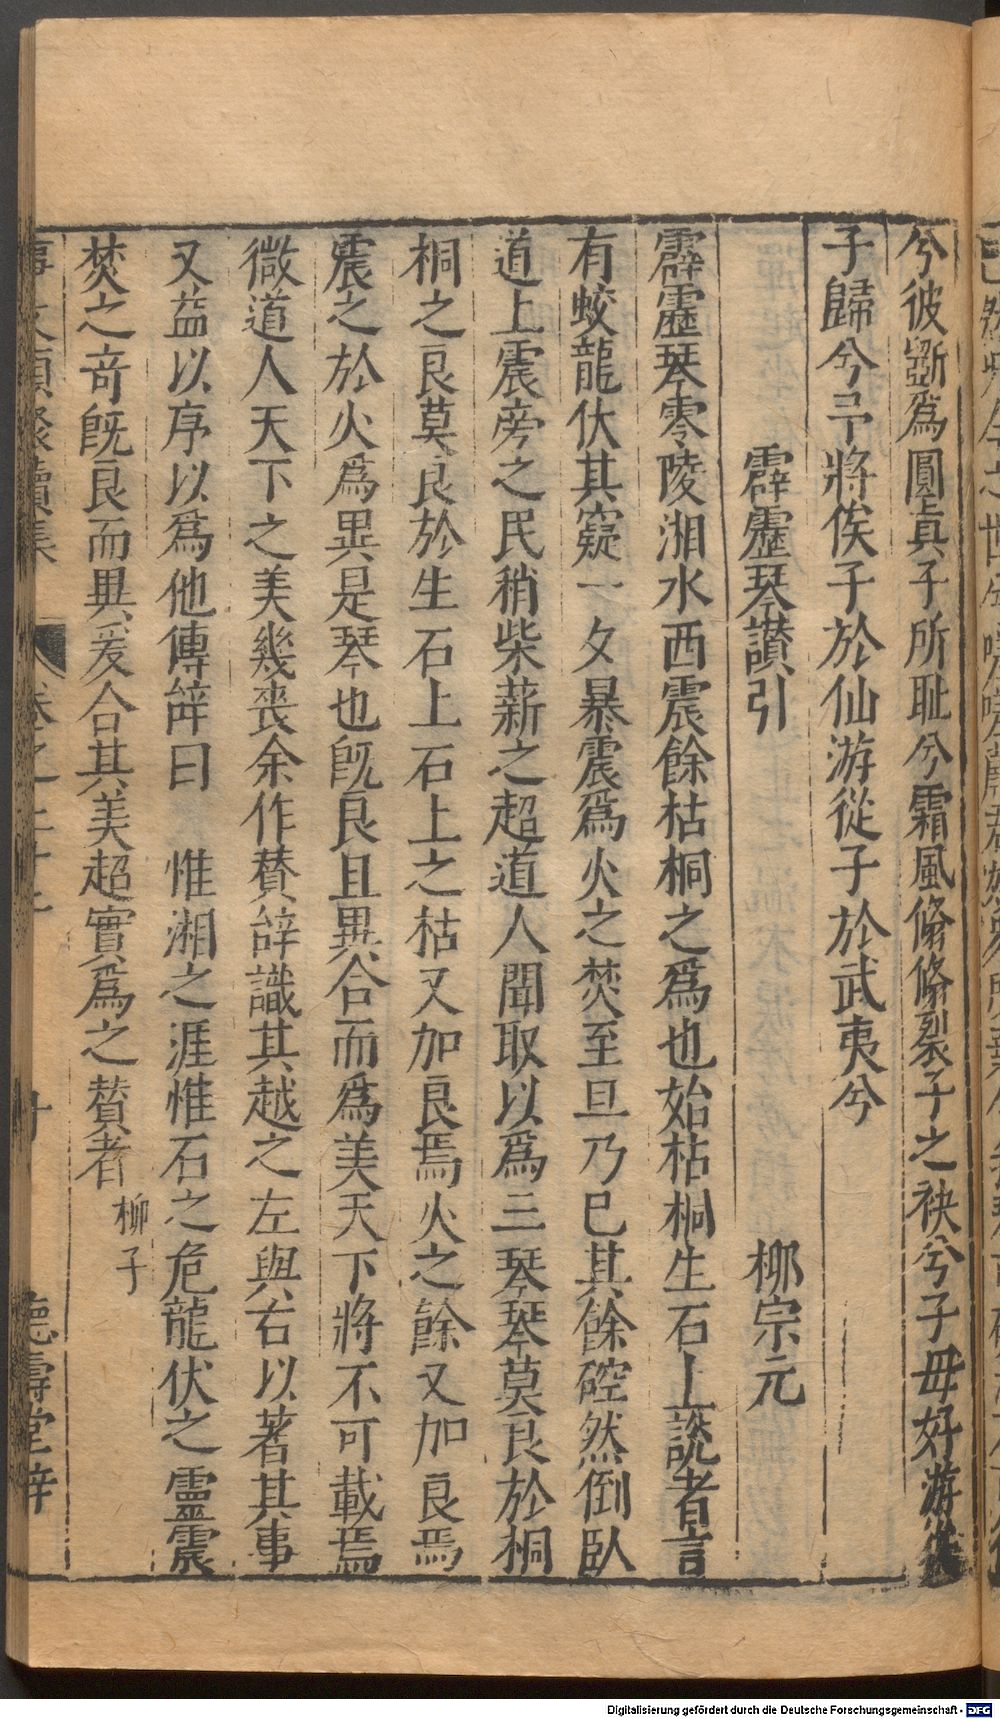 兮彼斵爲圓眞子所耻兮霜風翛翛裂子之袂兮子毋好游
子歸兮予將俟子於仙游從子於武夷兮
霹靂琴讃引　柳宗元
霹靂琴零陵湘水西震餘枯桐之爲也始枯桐生石上說者言
有蛟龍伏其窾一夕暴震爲火之焚至旦乃已其餘硿然倒臥
道上震旁之民稍柴薪之超道人聞取以爲三琴琴莫良於桐
桐之良莫良於生石上石上之枯又加良焉火之餘又加良焉
震之於火爲異是琴也旣良且異合而爲美天下將不可載焉
微道人天下之美幾喪余作賛辭識其越之左與右以著其事
又益以序以爲他傳辭曰　惟湘之涯惟石之危龍伏之靈震
焚之竒旣良而異爰合其美超實爲之賛者柳子
事文類聚續集　卷之二十二　十　德壽堂梓
Digitalisierung gefördert durch die Deutsche Forschungsgemeinschaft - DFG